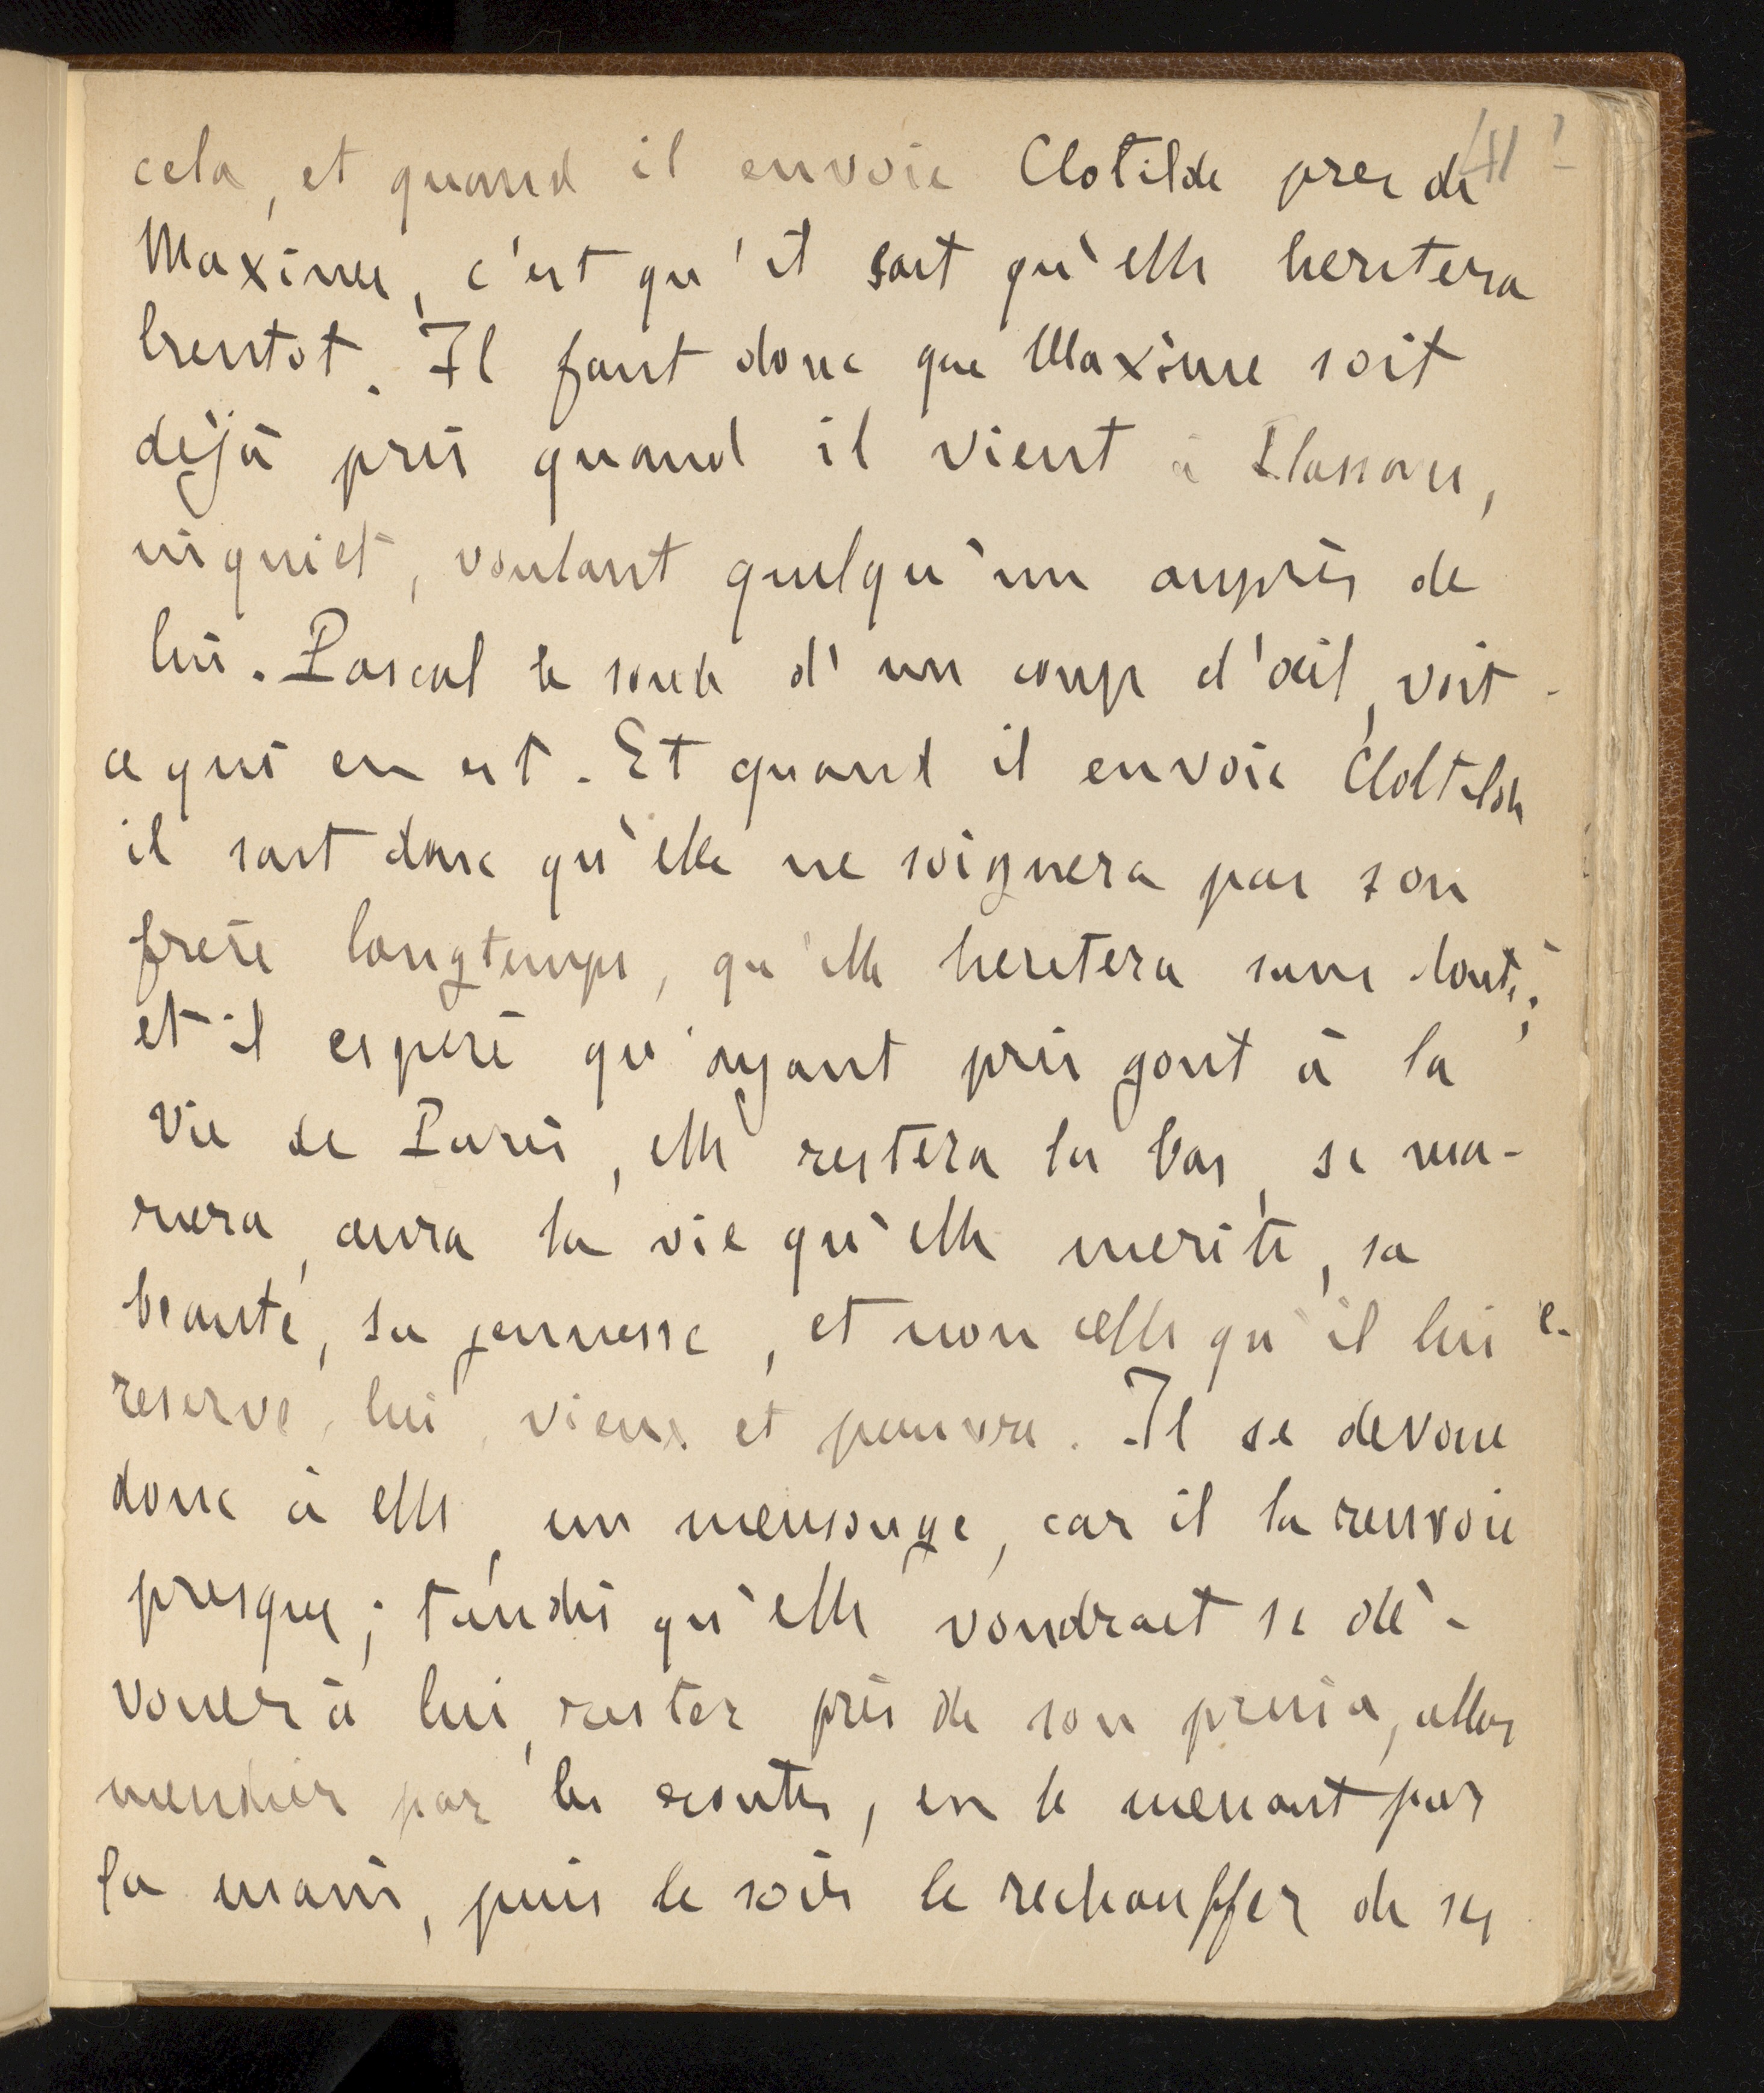 cela, et quand il envoie Clotilde pres de
Maxime, c'est qu'il sait qu'elle heritera
bientot. Il faut donc que Maxime soit
déjà pris quand il vient à Plassans,
inquiet, voulant quelqu'un auprès de
lui. Pascal le sonde d'un coup d'œil, voit
ce qui en est. Et quand il envoie Cloltilde
il sait donc qu'elle ne soignera pas son
frère longtemps, qu'elle heritera sans doute;
et il espère qu'ayant pris gout à la
vie de Paris, elle restera la bas, se ma-
riera, aura la vie qu'elle merite, sa
beauté, sa jeunesse, et non celle qu'il lui
reserve, lui, vieux et pauvre. Il se devoue
donc à elle, un mensonge, car il la renvoie
presque; tandis qu'elle voudrait se dé-
vouer à lui, rester près de son aller
mendier par les routes, en le menant par
la main, puis le soir le rechauffer de ses